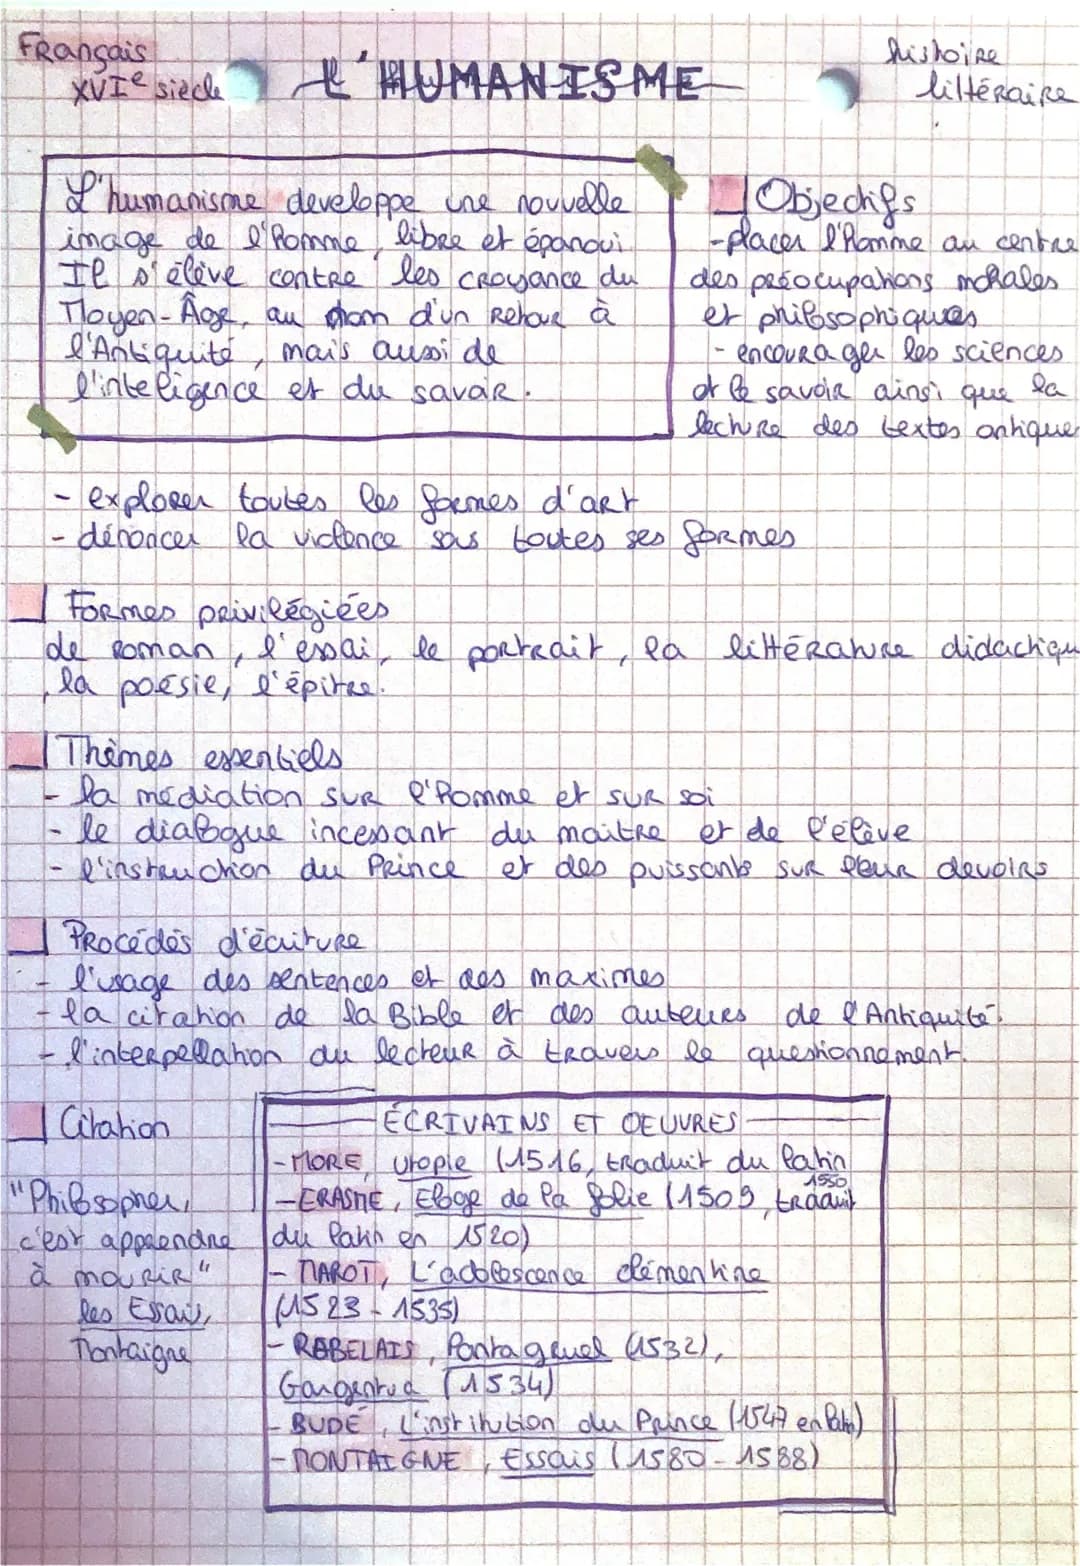 Français
XVIe siècle
L'HUMANISME
histoire
littéraire
L'humanisme developpe une nouvelle
image de l'homme, libre et épanoui.
Il s'élève contre les croyance du
Moyen-Âge, au nom d'un retour à
l'Antiquité, mais aussi de
l'inteligence et du savoir.
Objectifs
-placer l'homme au centre
des préocupations morales
et philosophiques
- encourager les sciences
et le savoir ainsi que la
lecture des textes antique
- explorer toutes les formes d'art
- dénoncer la violence sous toutes ses formes
Formes privilégiées
de roman, l'essai, le portrait, la littérature didactiqu
, la poésie, l'épitre.
Thèmes essentiels
- la médiation sur l'homme et sur soi
- le dialogue incessant du maître et de l'élève
- l'instruction du Prince et des puissants sur leur devoirs
Procédés d'écriture
- l'usage des sentences et des maximes
- la citation de la Bible et des auteurs de l'Antiquité.
- l'interpellation du lecteur à travers le questionnement.
Citation
"Philosopher,
c'est apprendre
à mourir"
les Essais,
Montaigne
ÉCRIVAINS ET OEUVRES
- MORE, Utopie (1516, traduit du latin
1550
- ERASME, Eloge de la folie (1509, traduit
du latin en 1520)
- MAROT, L'adolescence clémentine
(1523-1535)
- RABELAIS, Pantagruel (1532),
Gargentua (1534)
- BUDÉ, L'institution du Prince (1547 en latin)
- MONTAIGNE, Essais (1580-1588)